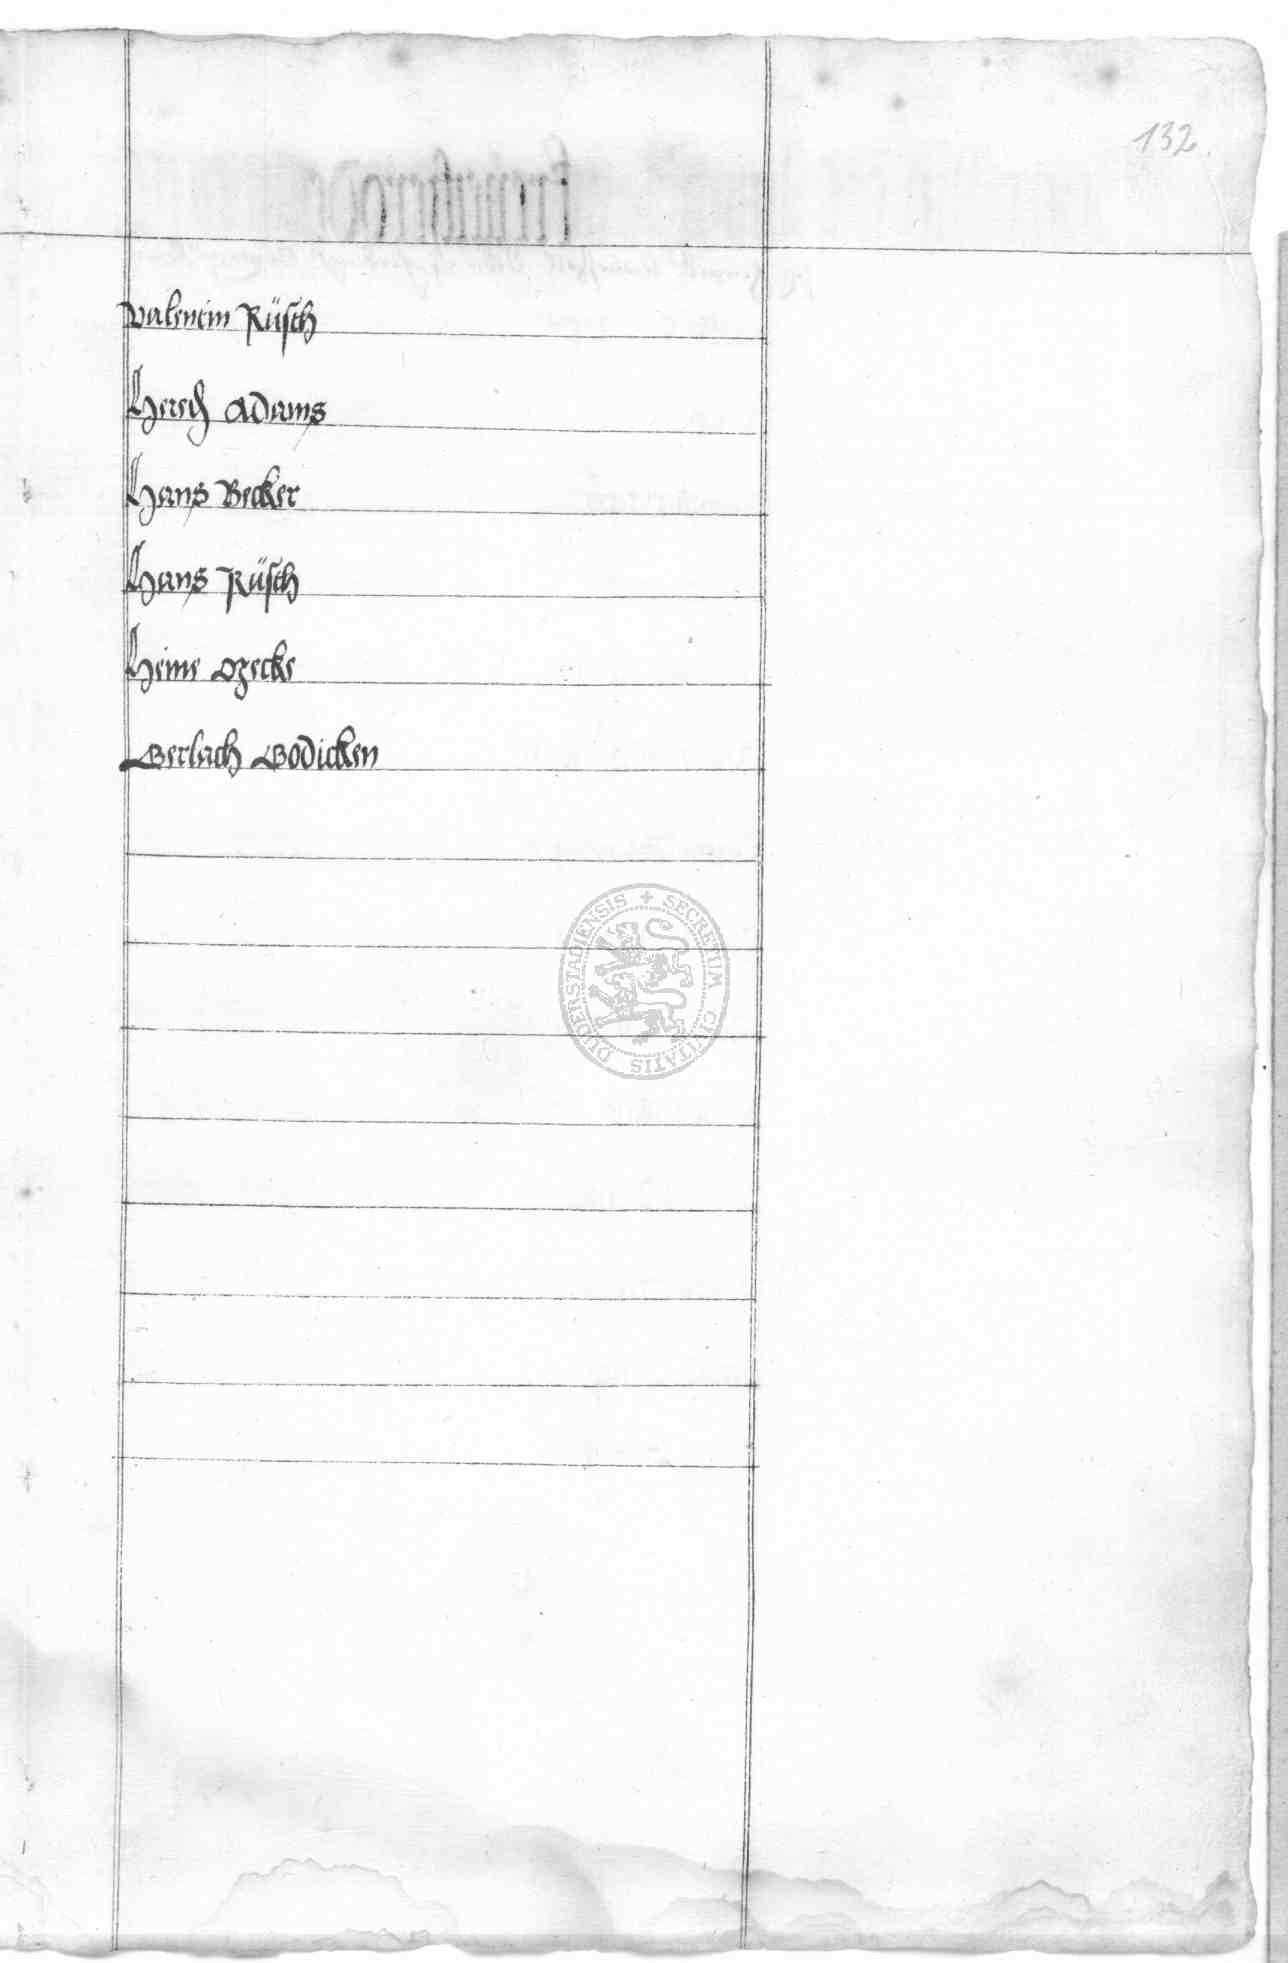 132.
Valentin Rüsch
Adams
Hans Becker
Hans Rüsch
Heine
Gerlach Bodicken
SECRETUM CIVITATIS DUDERSTADIENSIS